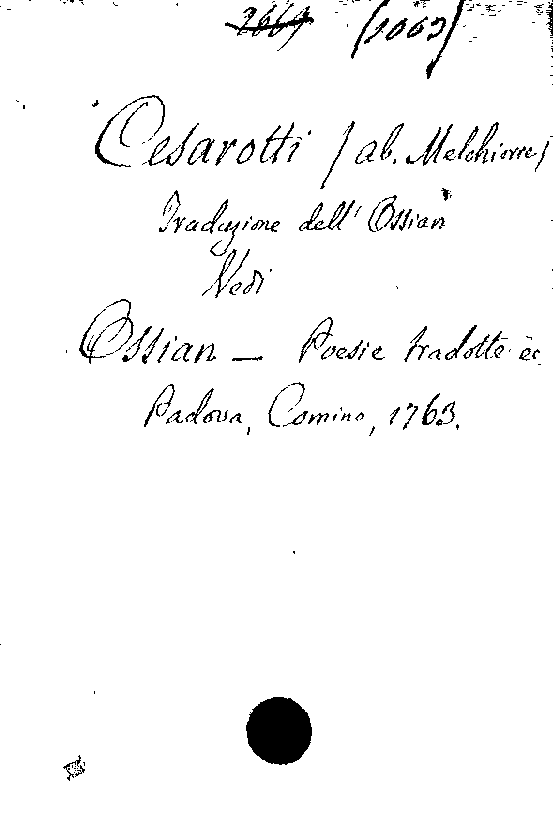 2669 (1063)
Cesarotti (ab. Melchiorre)
Traduzione dell' Ossian
Vedi
Ossian — Poesie tradotte ec
Padova, Comino, 1763.